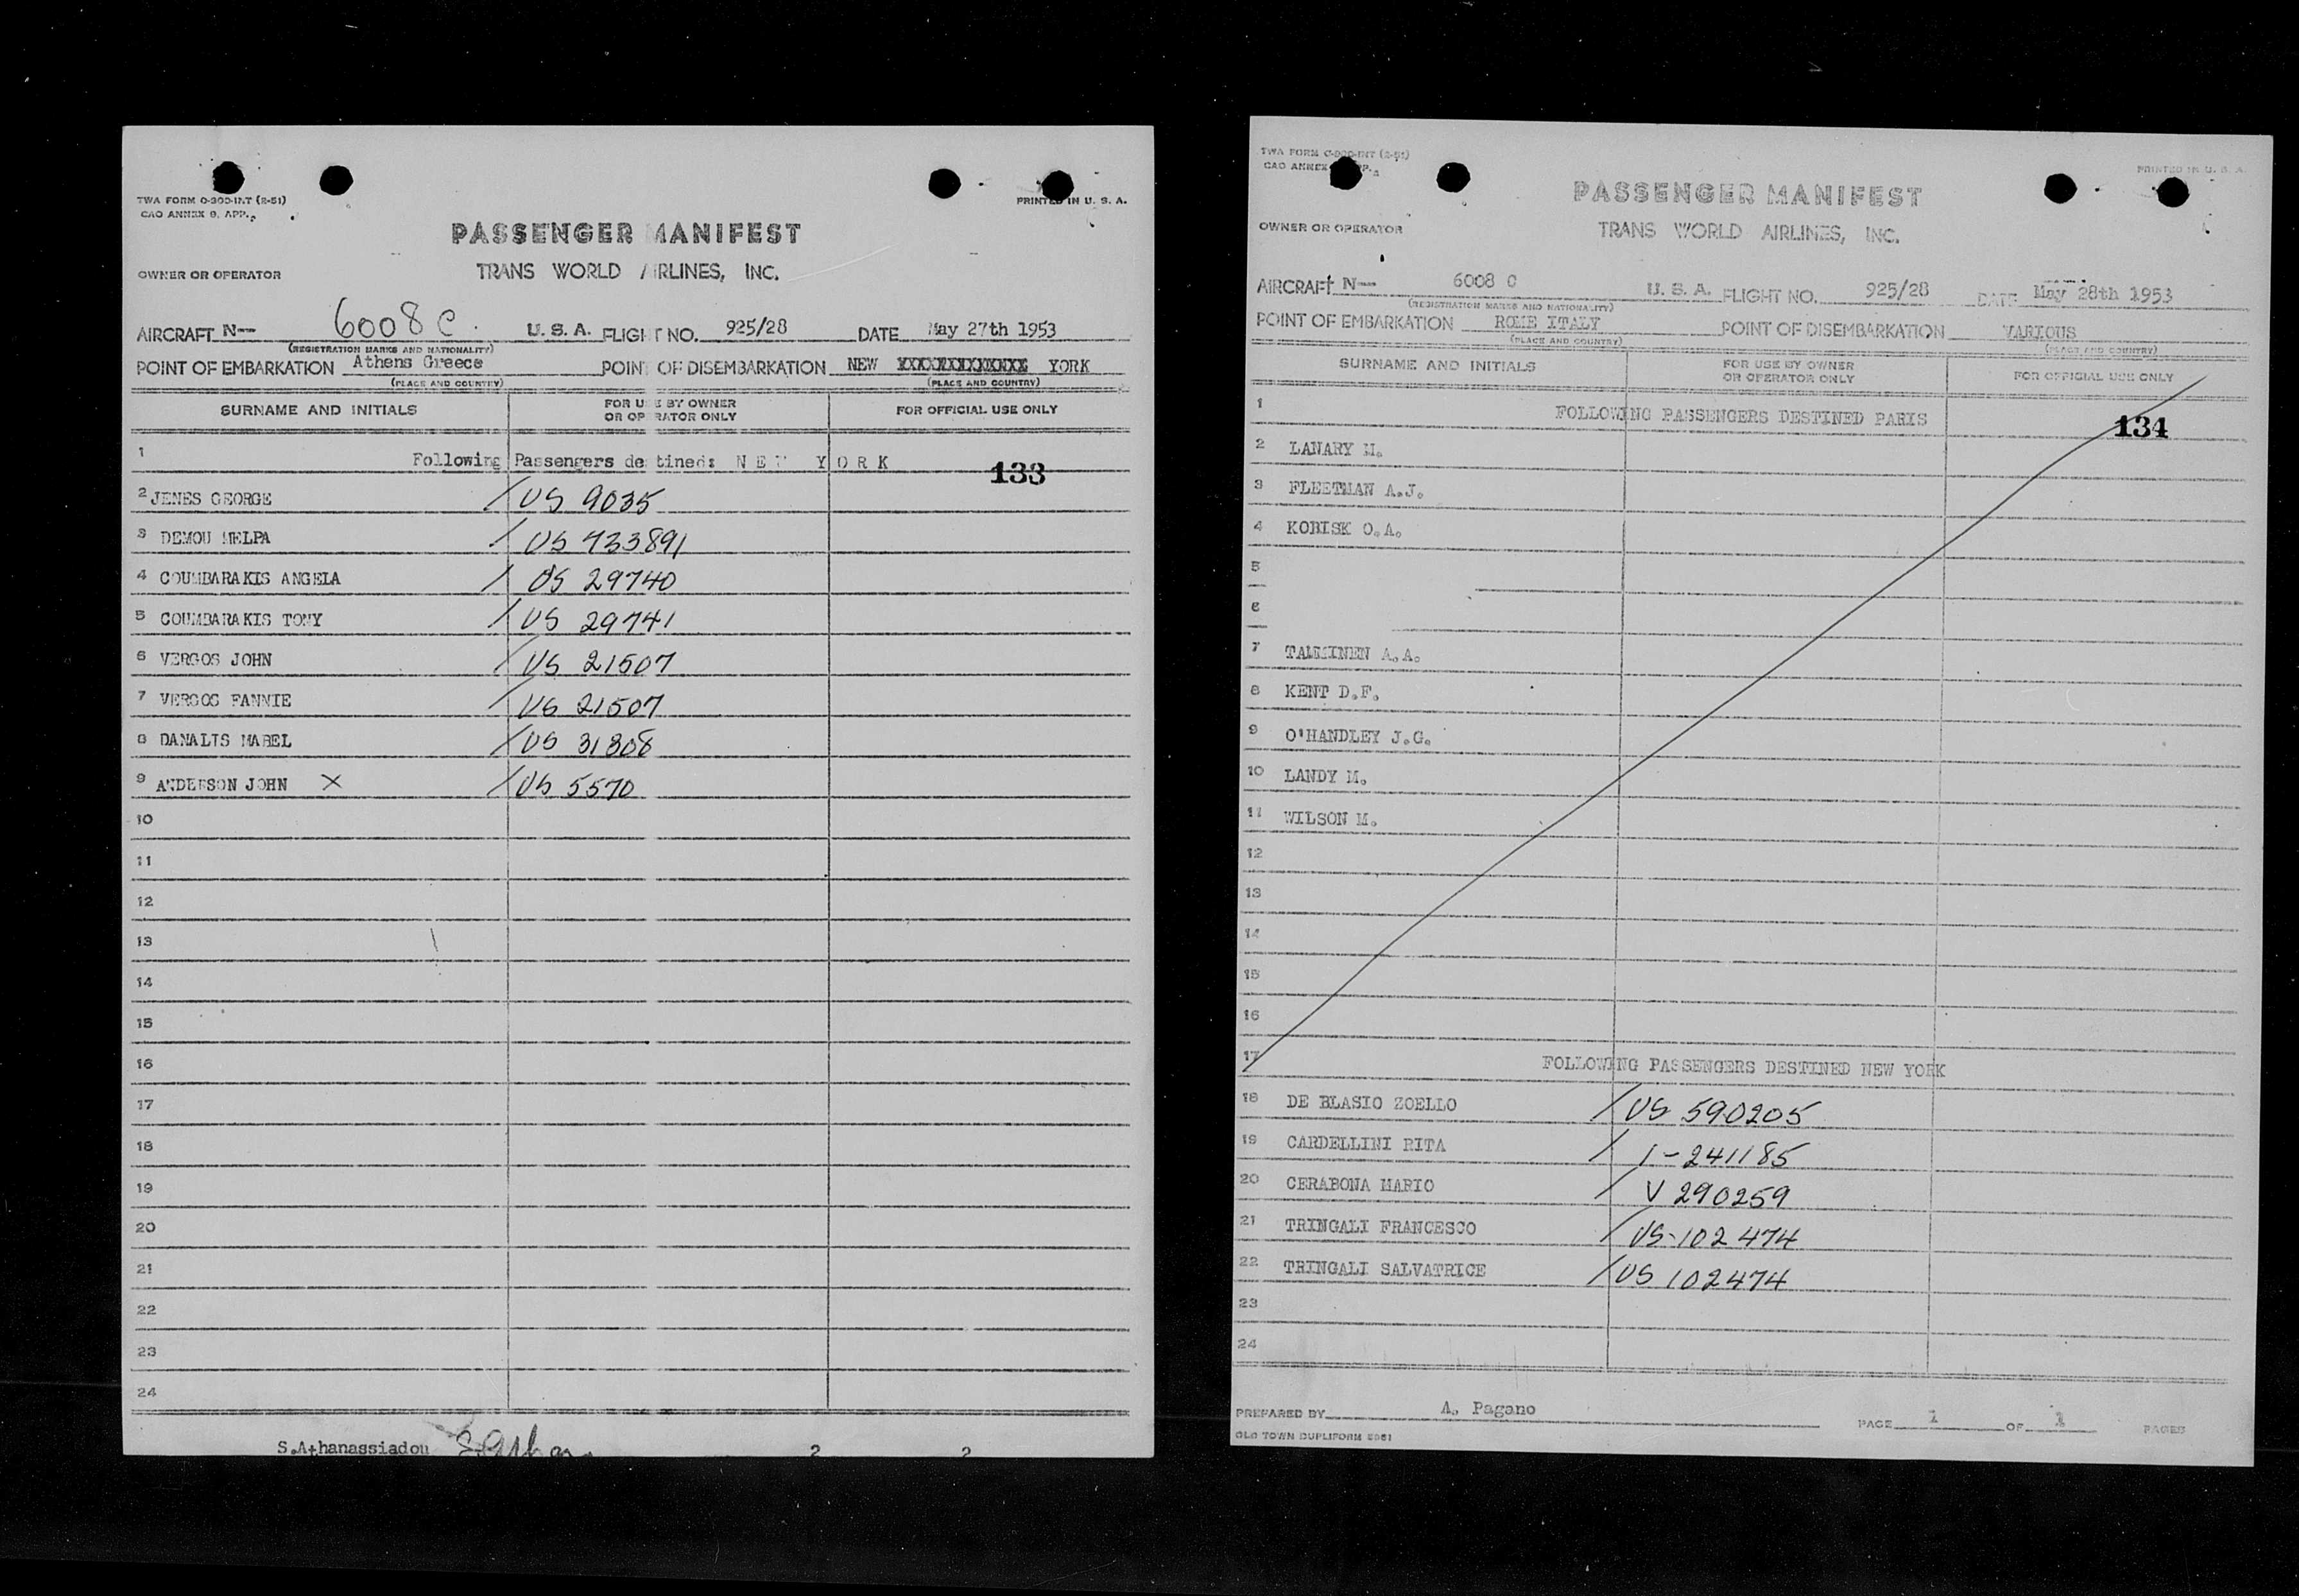 TWA FORM O-300-INT (2-51)
CAO ANNEX 9, APP.
PRINTED IN U. S. A.
PASSENGER MANIFEST
OWNER OR OPERATOR
TRANS WORLD AIRLINES, INC.
AIRCRAFT N-- 6008 C. U. S. A. FLIGHT NO. 925/28 DATE May 27th 1953
(REGISTRATION MARKS AND NATIONALITY)
POINT OF EMBARKATION Athens Greece POINT OF DISEMBARKATION NEW XXXXXXXXXXXXX YORK
(PLACE AND COUNTRY) (PLACE AND COUNTRY)
SURNAME AND INITIALS FOR USE BY OWNER OR OPERATOR ONLY FOR OFFICIAL USE ONLY
1 Following Passengers destined: N E W Y O R K 133
2 JENES GEORGE / US 9035
3 DEMOU MELPA / US 733891
4 COUMBARAKIS ANGELA / US 29740
5 COUMBARAKIS TONY / US 29741
6 VERGOS JOHN / US 21507
7 VERGOS FANNIE / US 21507
8 DANALIS MABEL / US 31808
9 ANDERSON JOHN X / US 5570
10
11
12
13
14
15
16
17
18
19
20
21
22
23
24
S.Athanassiadou 2 2
TWA FORM O-300-INT (2-51)
CAO ANNEX APP.
PRINTED IN U. S. A.
PASSENGER MANIFEST
OWNER OR OPERATOR
TRANS WORLD AIRLINES, INC.
AIRCRAFT N-- 6008 C U. S. A. FLIGHT NO. 925/28 DATE May 28th 1953
(REGISTRATION MARKS AND NATIONALITY)
POINT OF EMBARKATION ROME ITALY POINT OF DISEMBARKATION VARIOUS
(PLACE AND COUNTRY) (PLACE AND COUNTRY)
SURNAME AND INITIALS FOR USE BY OWNER OR OPERATOR ONLY FOR OFFICIAL USE ONLY
1 FOLLOWING PASSENGERS DESTINED PARIS 134
2 LANARY M.
3 FLEETMAN A.J.
4 KOBISK O.A.
5
6
7 TAMMINEN A.A.
8 KENT D.F.
9 O'HANDLEY J.G.
10 LANDY M.
11 WILSON M.
12
13
14
15
16
17 FOLLOWING PASSENGERS DESTINED NEW YORK
18 DE BLASIO ZOELLO / US 590205
19 CARDELLINI RITA / I-241185
20 CERABONA MARIO / V 290259
21 TRINGALI FRANCESCO / US-102474
22 TRINGALI SALVATRICE / US 102474
23
24
PREPARED BY A. Pagano PAGE 1 OF 1 PAGES
OLD TOWN DUPLIFORM 5951